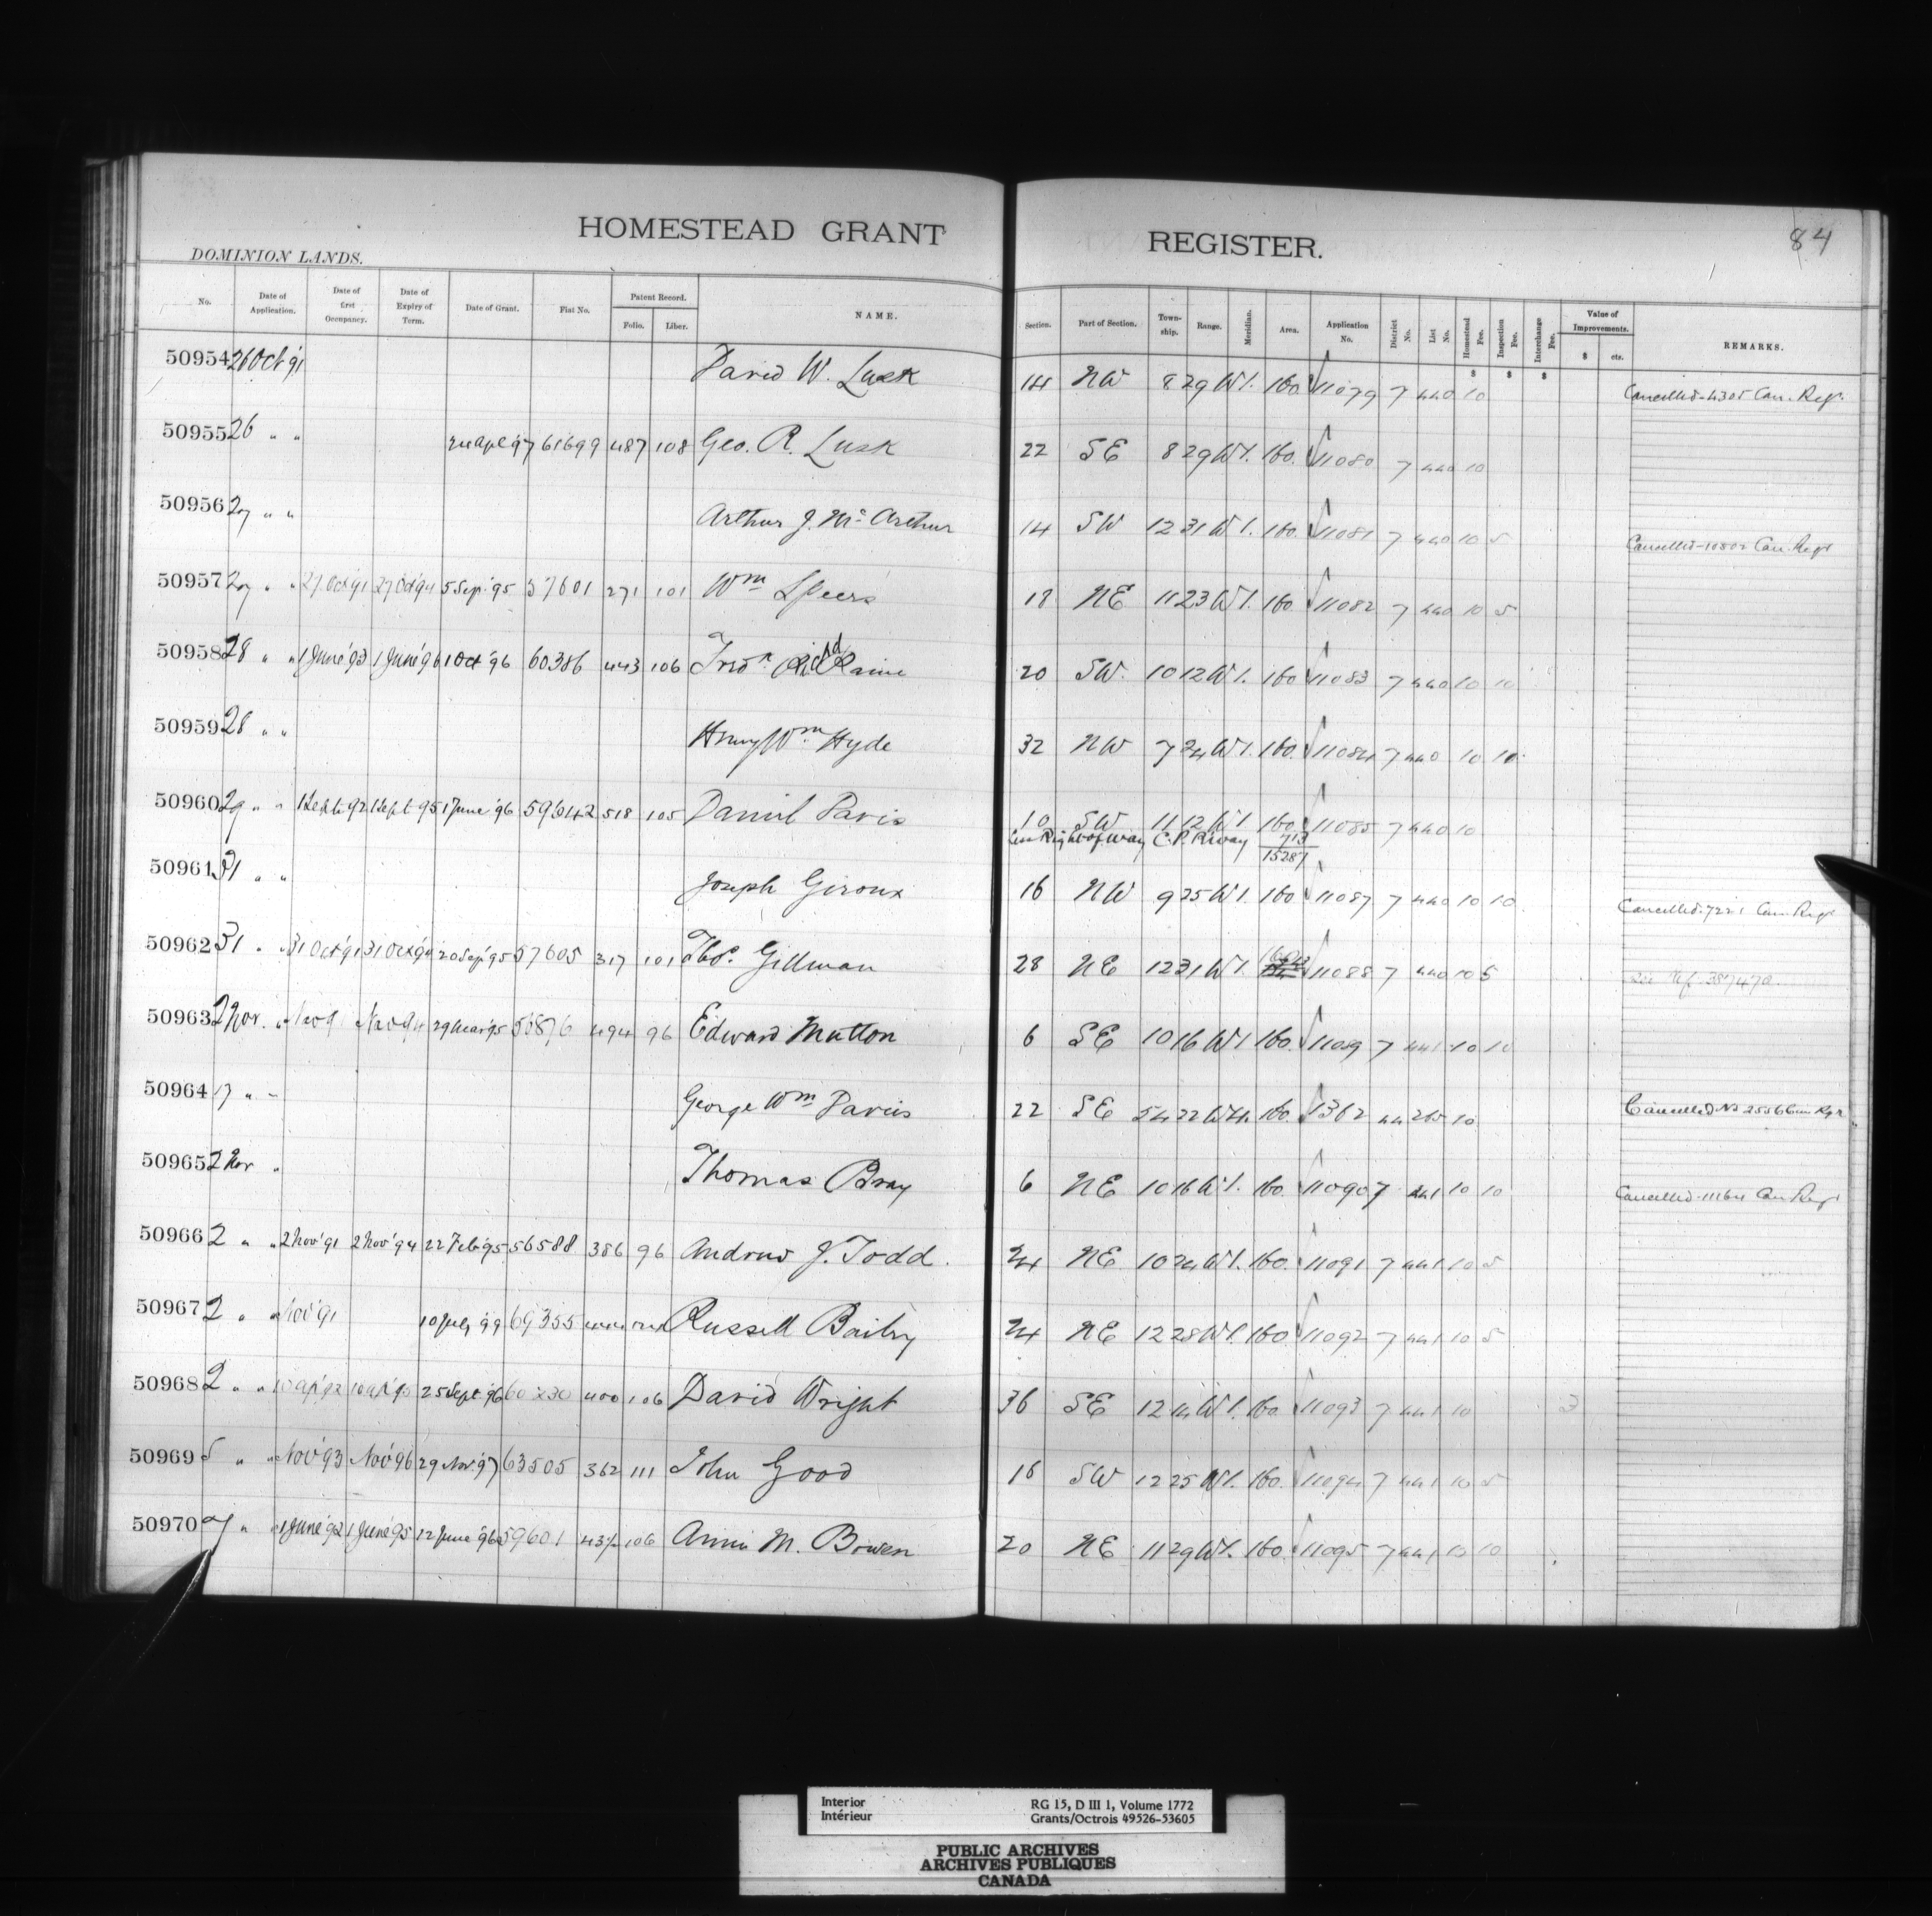 HOMESTEAD GRANT REGISTER.
84
DOMINION LANDS.
No. Date of Application. Date of first Occupancy. Date of Expiry of Term. Date of Grant. Fiat No. Patent Record. Folio. Liber. NAME. Section. Part of Section. Town-ship. Range. Meridian. Area. Application No. District No. List No. Homestead Fee. Inspection Fee. Interchange Fee. Value of Improvements. $ cts. REMARKS.
$ $ $
50954 26 Oct 91 David W. Lusk 14 NW 8 29 W1. 160. 11079 7 440 10 Cancelled-4305 Can. Regr.
50955 26 " " 24 Apl 97 61699 487 108 Geo. R. Lusk 22 SE 8 29 W1. 160. 11080 7 440 10
50956 27 " " Arthur J. Mc Arthur 14 SW 12 31 W1. 160. 11081 7 440 10 5 Cancelled-10802 Can. Regr
50957 27 " " 27 Oct 91 27 Oct 94 5 Sep. 95 57601 271 101 Wm Speers 18 NE 11 23 W1. 160. 11082 7 440 10 5
50958 28 " " 1 June '93 1 June '96 1 Oct '96 60386 443 106 Fredk. Richd Raine 20 SW. 10 12 W1. 160 11083 7 440 10 10
50959 28 " " Henry Wm Hyde 32 NW 7 24 W1. 160. 11084 7 440 10 10
50960 29 " " 1 Sept 92 1 Sept 95 1 June '96 59642 518 105 Daniel Davis 10 SW 11 12 W1 160 11085 7 440 10
Less Right of way C.P. Rway 7 13
152 87
50961 31 " " Joseph Giroux 16 NW 9 25 W1. 160 11087 7 440 10 10 Cancelled-7221 Can. Regr
50962 31 " " 31 Oct '91 31 Oct '94 20 Sep '95 57605 317 101 Thos. Gillman 28 NE 12 31 W1. 11088 7 440 10 5 See Ref. 387470
50963 2 Nov. " Nov 91 Nov 94 29 Mar '95 56876 494 96 Edward Mutton 6 SE 10 16 W1 160. 11089 7 441 10 10
50964 17 " " George Wm Davies 22 SE 54 22 W4. 160. 1362 44 265 10 Cancelled No 2556 Can Regr
50965 2 Nov " Thomas Bray 6 NE 10 16 W1. 160. 11090 7 441 10 10 Cancelled-11164 Can Regr
50966 2 " " 2 Nov '91 2 Nov '94 22 Feb '95 56588 386 96 Andrew J. Todd. 24 NE 10 24 W1. 160. 11091 7 441 10 5
50967 2 " " Nov '91 10 July '99 69355 444 124 Russell Bailey 24 NE 12 28 W1. 160 11092 7 441 10 5
50968 2 " " 10 Apl '92 10 Apl '95 25 Sept '96 60230 400 106 David Wright 36 SE 12 14 W1. 160. 11093 7 441 10 3
50969 5 " " Nov '93 Nov '96 29 Nov. 97 63505 362 111 John Good 16 SW 12 25 W1. 160. 11094 7 441 10 5
50970 7 " " 1 June '92 1 June '95 12 June '96 59601 437 106 Annie M. Bowen 20 NE 11 29 W1. 160. 11095 7 441 10 10
Interior
Intérieur
RG 15, D III 1, Volume 1772
Grants/Octrois 49526-53605
PUBLIC ARCHIVES
ARCHIVES PUBLIQUES
CANADA